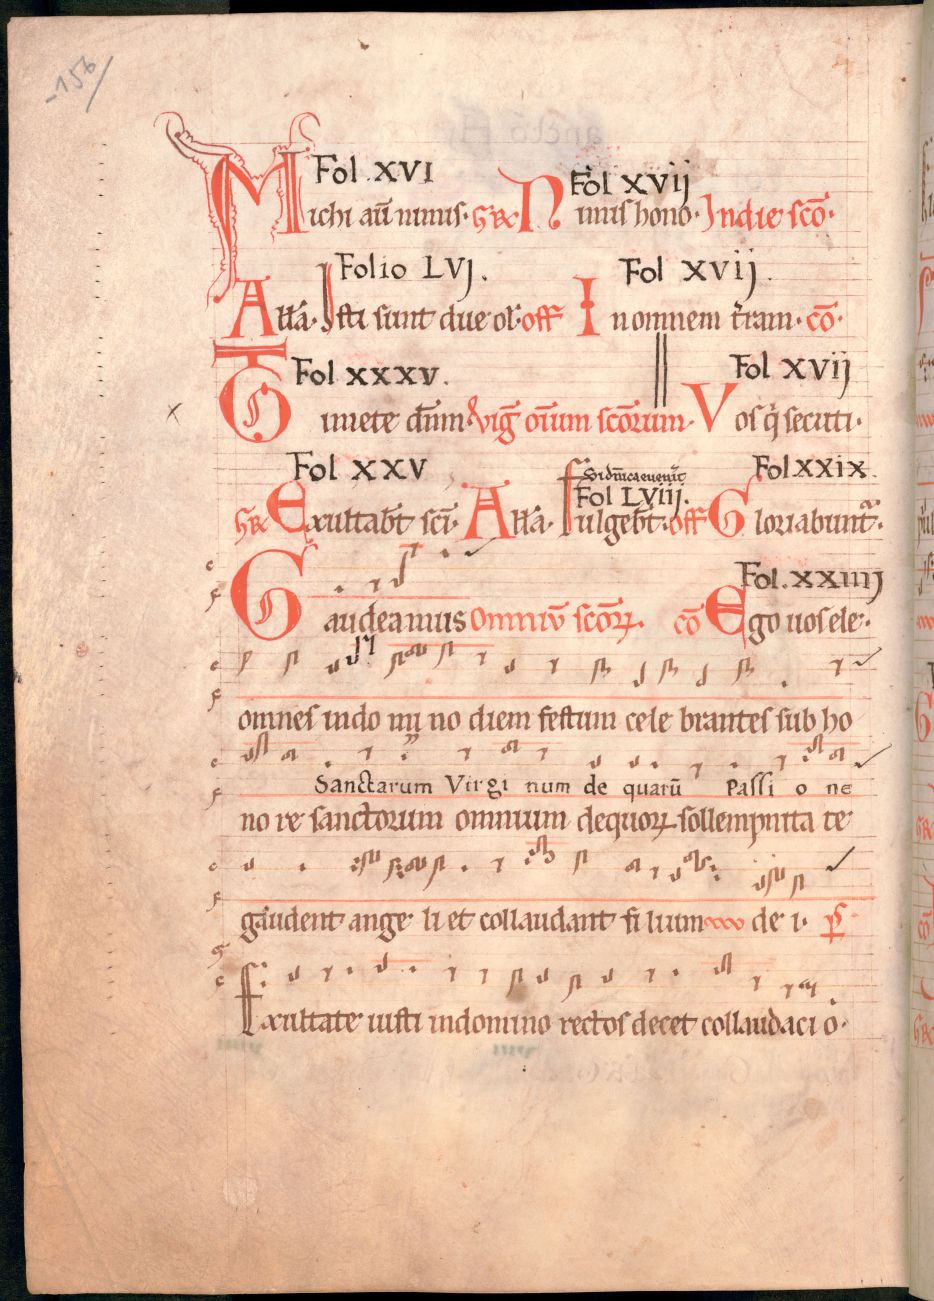 -156/
Fol .XVI Fol XVIJ
Michi aū nimis· GR̄ Nimis hono· In die scō·
Folio LVJ. Fol XVIJ.
All̄a· Isti sunt due ol· off In omnem t̄ram· cō·
Fol XXXV. Fol XVIJ
Timete dn̄m· Vig om̄ium scōrum· Vos q̇ secuti·
Fol XXV Fol XXIX.
Fol LVIIJ.
GR̄ Exultab̄t sc̄i· All̄a· Fulgeb̄t· off Gloriabunt᷑·
Fol. XXIIIJ
Gaudeamus Omniū scōꝝ. cō Ego uos ele·
omnes in do mi no diem festum cele brantes sub ho
Sanctarum Virgi num de quarū Passi o ne
no re sanctorum omnium dequoꝝ sollempnita te
gaudent ange li et collaudant fi lium de i· p̄s
Exultate iusti in domino rectos decet collaudaci o·